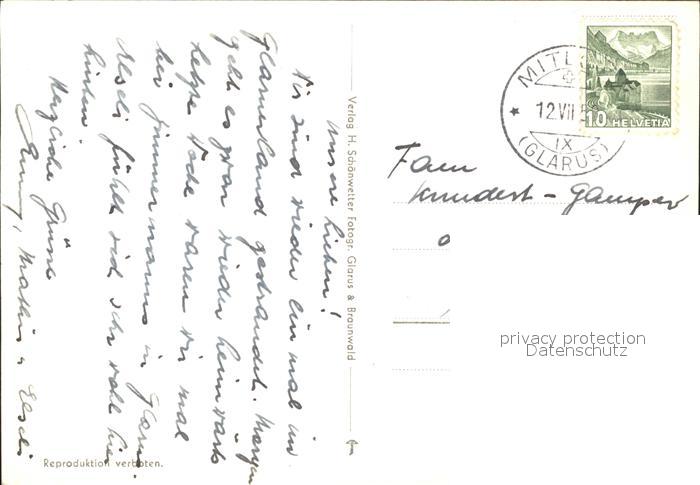 Unsere Lieben!
Wir sind wieder ein mal im
Glarnerland gestrandet. Morgen
geht es wieder heimwärts
letzte Woche waren wir mal
bei Zimmermanns in Glarus.
Elseli fühlt sich sehr wohl hier
hinten.
Herzliche Grüsse
Emmy, Mathis u Elseli
Reproduktion verboten.
Verlag H. Schönwetter Fotogr. Glarus & Braunwald
MITL
12.VII
IX
(GLARUS)
10 HELVETIA
Fam
Knundert - Gamper
privacy protection
Datenschutz